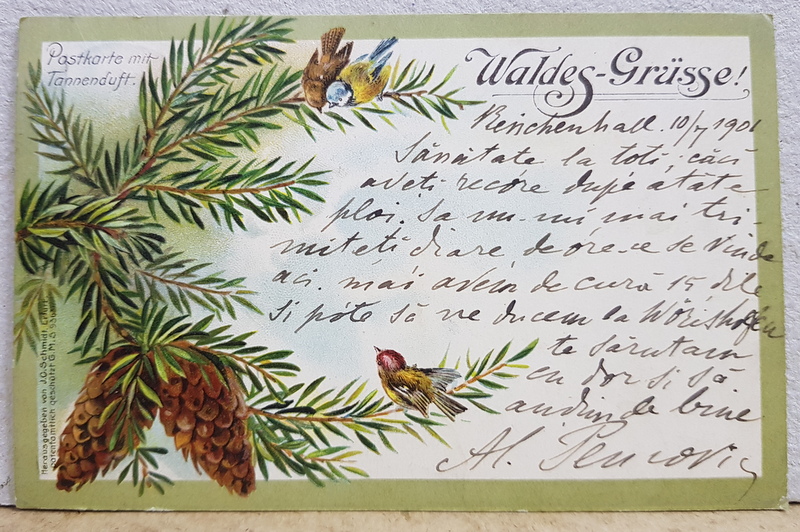 Postkarte mit
Tannenduft.
Waldes-Grüsse!
Reichenhall. 10/7 1901
Sănătate la toti, căci
aveti recóre dupe atâte
ploi. Sa nu-mi mai tri-
miteti diare, de óre-ce se vinde
aci. mai avem de cură 15 dile
si póte să ne ducem la Wörishofen
te sărutam
cu dor si să
audim de bine
Al.
Herausgegeben von J.C. Schmidt, Erfurt.
patentamtlich geschützt G.M.S.